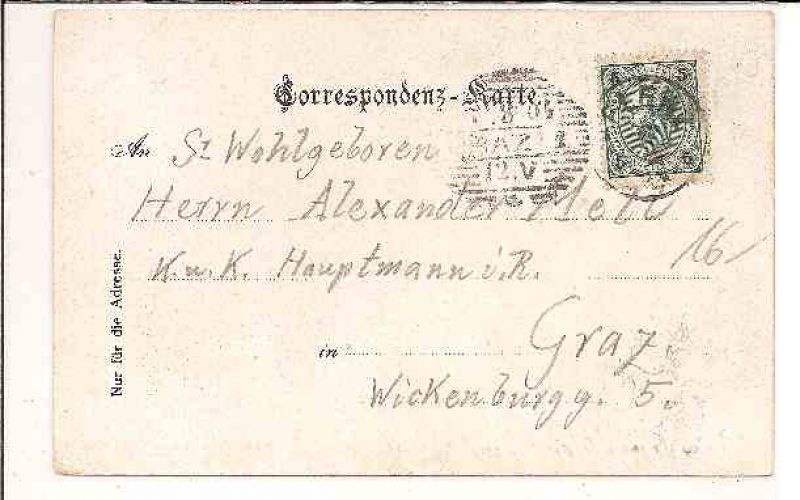 Correspondenz-Karte.
An Sr Wohlgeboren
Herrn Alexander
K. u. K. Hauptmann i. R.
16
in Graz.
Wickenburgg. 5.
Nur für die Adresse.
GRAZ
12.V
5